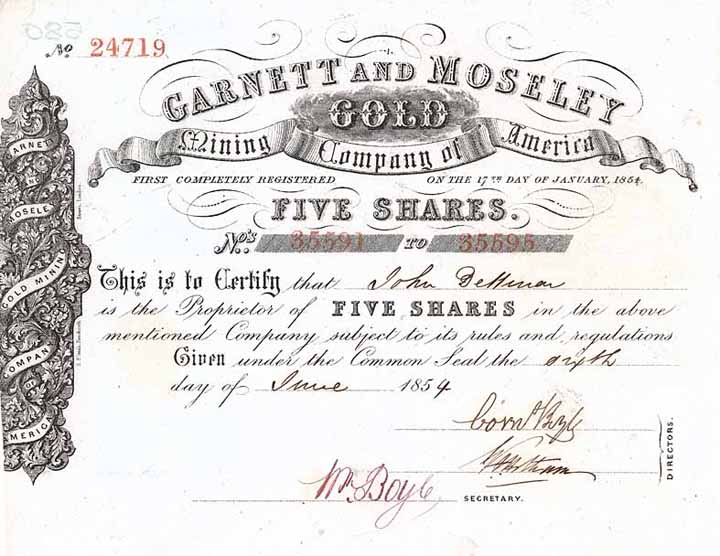 No 24719
GARNETT AND MOSELEY
GOLD
Mining Company of America
FIRST COMPLETELY REGISTERED ON THE 17TH DAY OF JANUARY, 1854.
FIVE SHARES.
No's 35591 TO 35595
This is to Certify that John
is the Proprietor of FIVE SHARES in the above
mentioned Company subject to its rules and regulations
Given under the Common Seal the sixth
day of June 1854
DIRECTORS.
Wm Boyle SECRETARY.
ARNET
OSELE
GOLD MINING
COMPAN
OF
MERIC